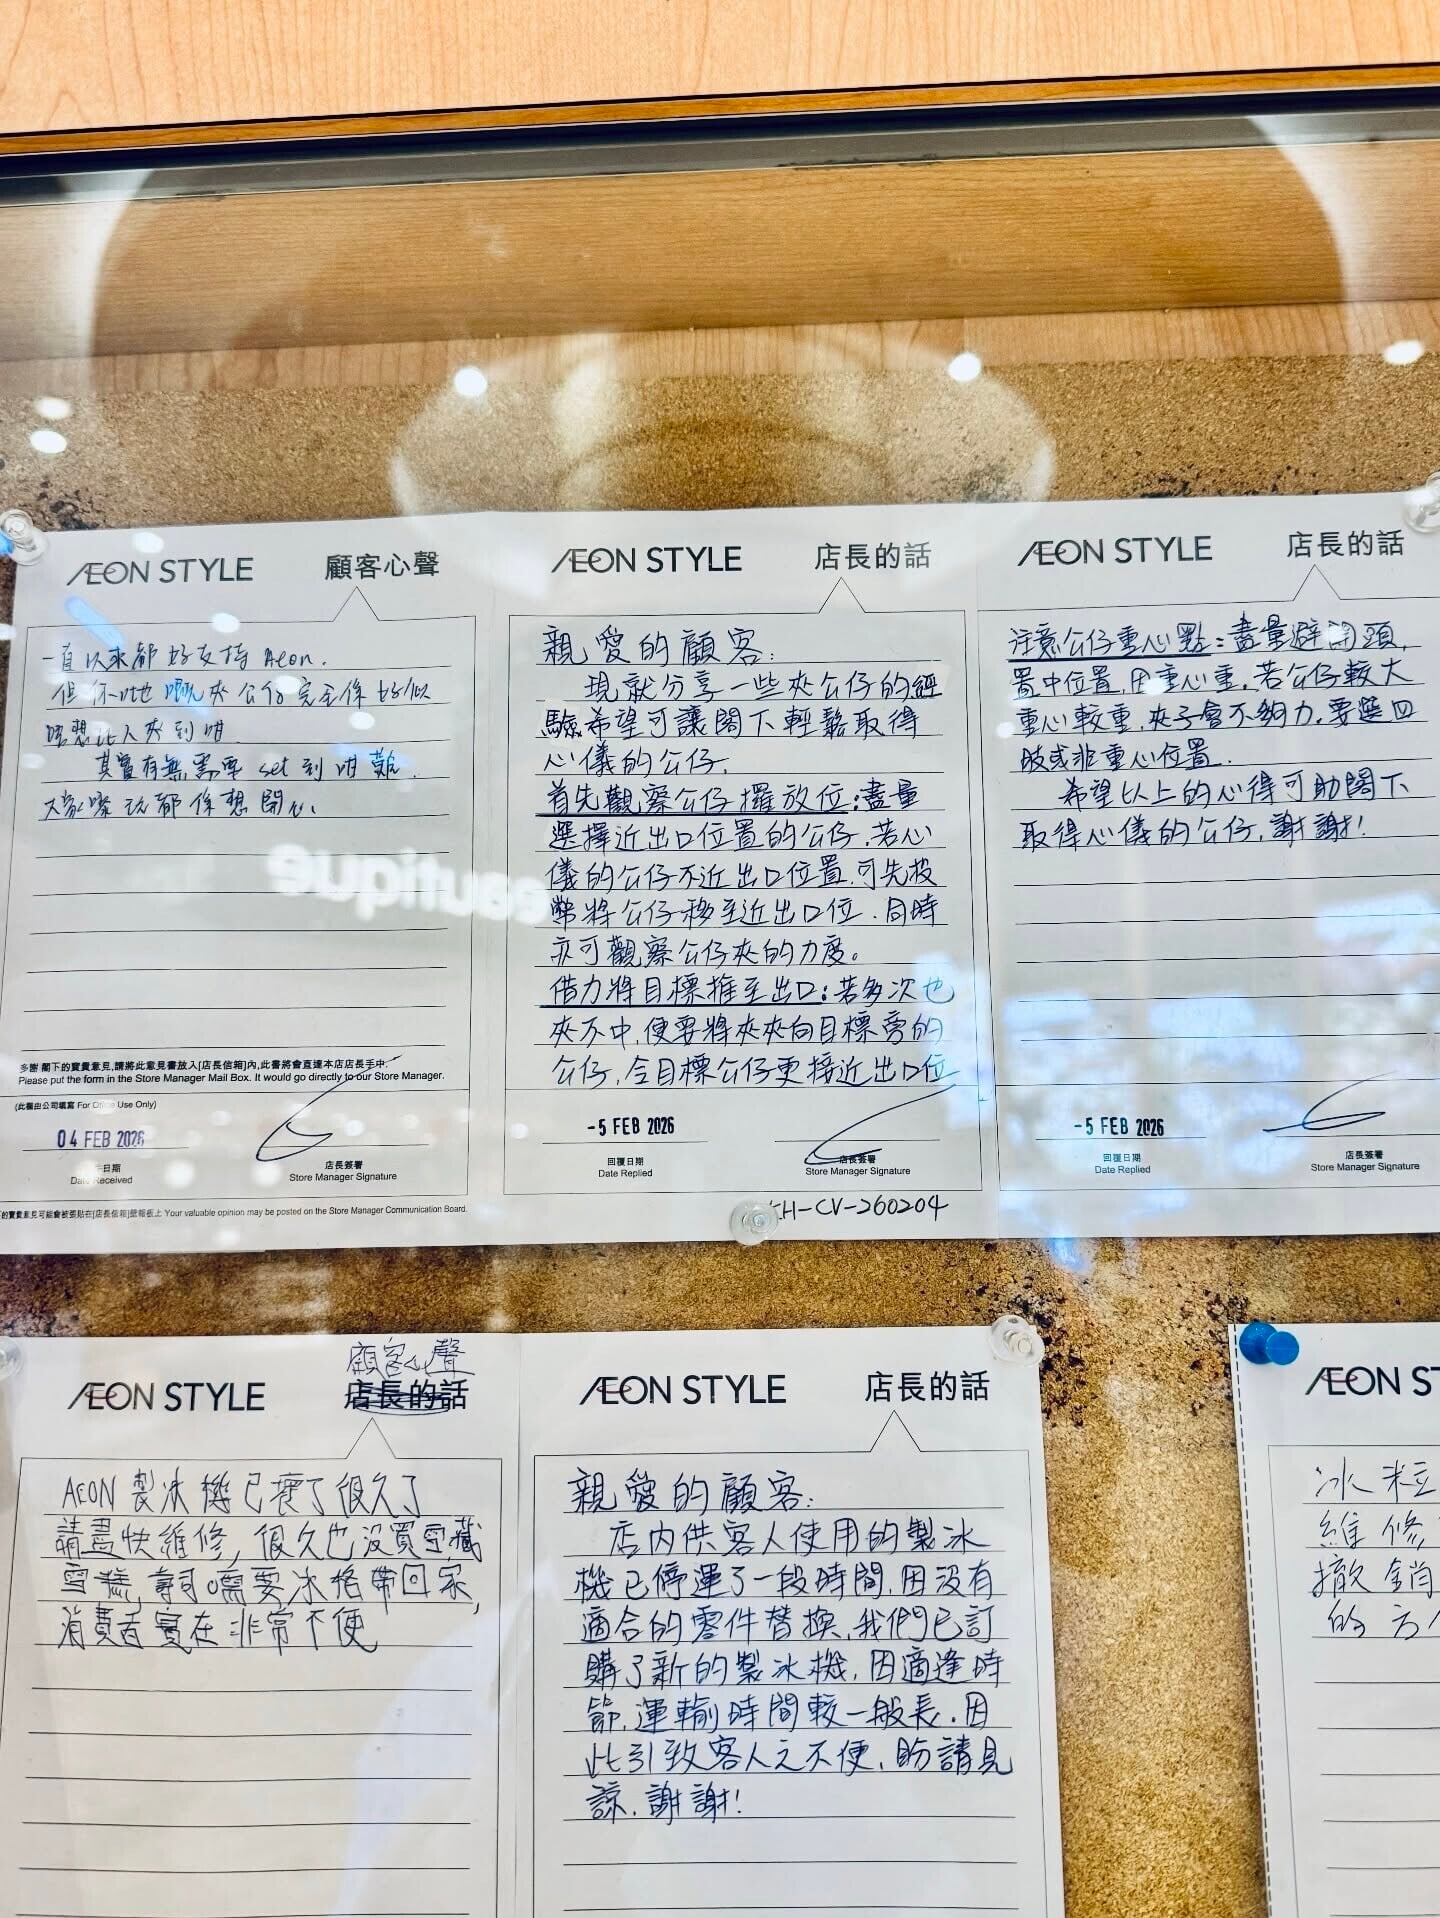 ÆON STYLE 顧客心聲
一直以來都好支持 Aeon.
但你哋嘅夾公仔完全係好似
唔想比人夾到咁
其實有無需要 set 到咁難.
大家嚟玩都係想開心.
多謝 閣下的寶貴意見,請將此意見書放入[店長信箱]內,此書將會直達本店店長手中.
Please put the form in the Store Manager Mail Box. It would go directly to our Store Manager.
(此欄由公司填寫 For Office Use Only)
04 FEB 2026
日期 店長簽署
Date Received Store Manager Signature
的寶貴意見可能會被張貼在[店長信箱]壁報板上 Your valuable opinion may be posted on the Store Manager Communication Board.
ÆON STYLE 店長的話
親愛的顧客:
現就分享一些夾公仔的經
驗希望可讓閣下輕鬆取得
心儀的公仔.
首先觀察公仔擺放位:盡量
選擇近出口位置的公仔.若心
儀的公仔不近出口位置.可先投
幣將公仔移至近出口位.同時
亦可觀察公仔夾的力度。
借力將目標推至出口:若多次也
夾不中,便要將夾夾向目標旁的
公仔,令目標公仔更接近出口位
-5 FEB 2026
回覆日期 店長簽署
Date Replied Store Manager Signature
KH-CV-260204
ÆON STYLE 店長的話
注意公仔重心點:盡量避開頭,
置中位置,因重心重.若公仔較大
重心較重,夾子會不夠力.要選四
肢或非重心位置.
希望以上的心得可助閣下
取得心儀的公仔,謝謝!
-5 FEB 2026
回覆日期 店長簽署
Date Replied Store Manager Signature
ÆON STYLE 店長的話
顧客心聲
AEON 製冰機已壞了很久了
請盡快維修,很久也沒買雪藏
雪糕,壽司需要冰格帶回家,
消費者實在非常不便
ÆON STYLE 店長的話
親愛的顧客:
店內供客人使用的製冰
機已停運了一段時間,因沒有
適合的零件替換,我們已訂
購了新的製冰機,因適逢時
節,運輸時間較一般長.因
此引致客人之不便,盼請見
諒.謝謝!
ÆON ST
冰粒
維修
撤銷
的方